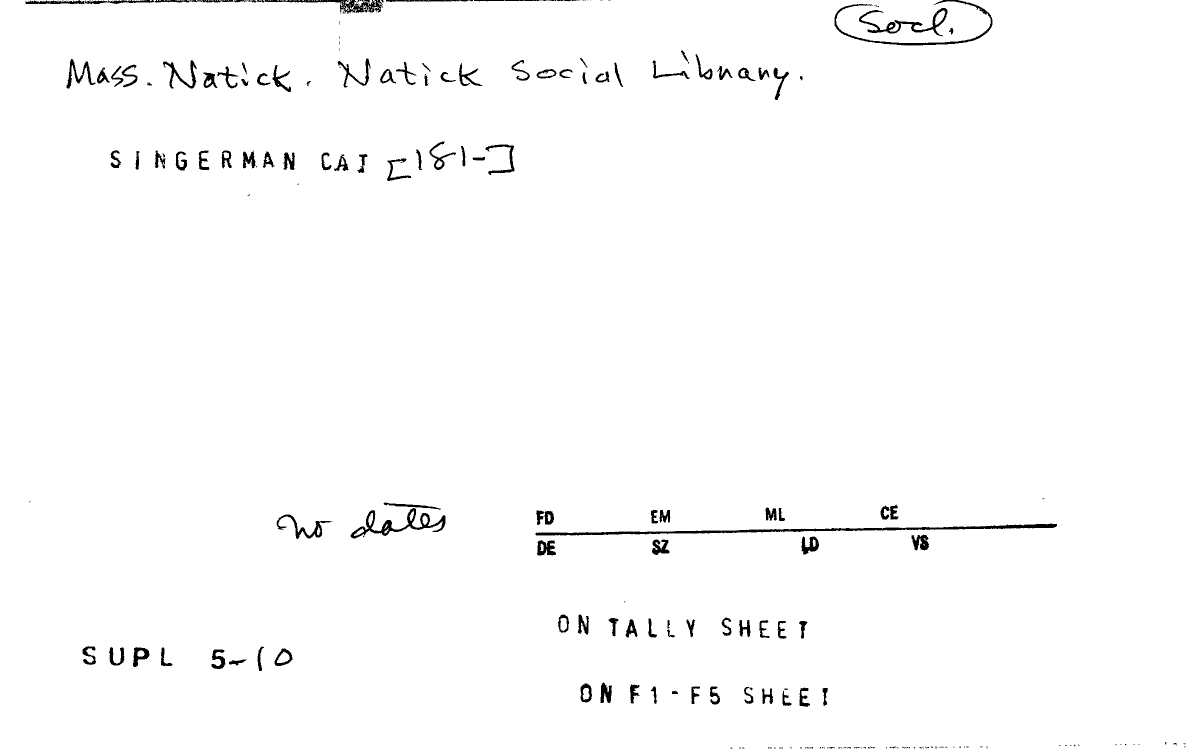 Socl.
Mass. Natick. Natick Social Library.
SINGERMAN CAT [181-]
no dates
FD EM ML CE
DE SZ LD VS
ON TALLY SHEET
SUPL 5-10
ON F1-F5 SHEET